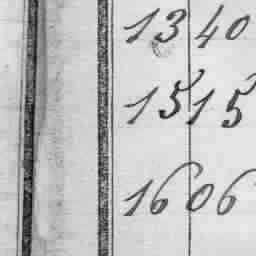 1340
1515
1606